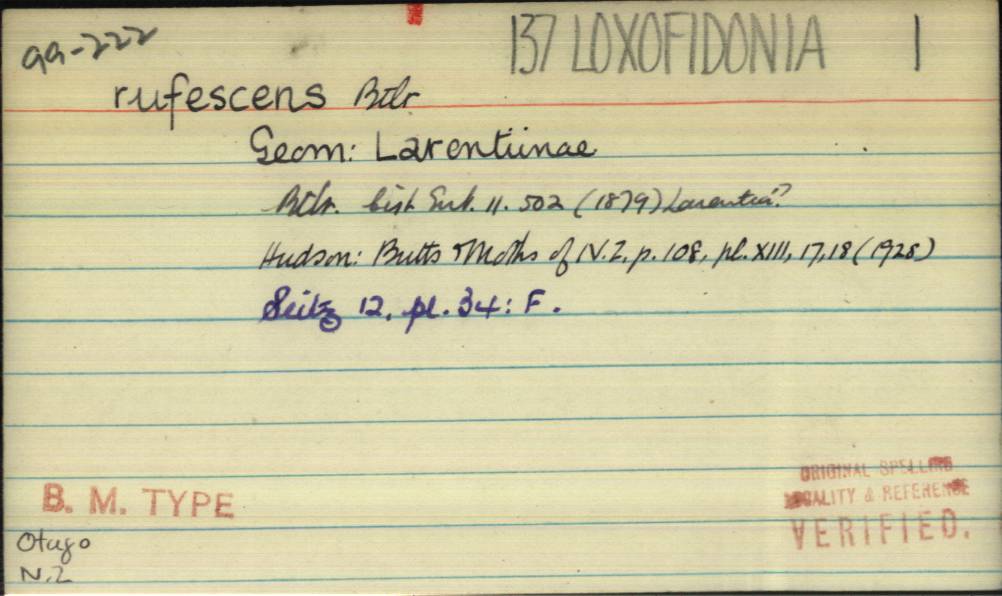 99-222
137 LOXOFIDONIA 1
rufescens Btlr
Geom: Larentiinae
Btlr. Cist Ent. 11. 502 (1879) Larentia?
Hudson: Butts & Moths of N.Z. p. 108, pl. XIII, 17, 18 (1928)
Seitz 12, pl. 34: F.
ORIGINAL SPELLING
LOCALITY & REFERENCE
B. M. TYPE
VERIFIED.
Otago
N.Z